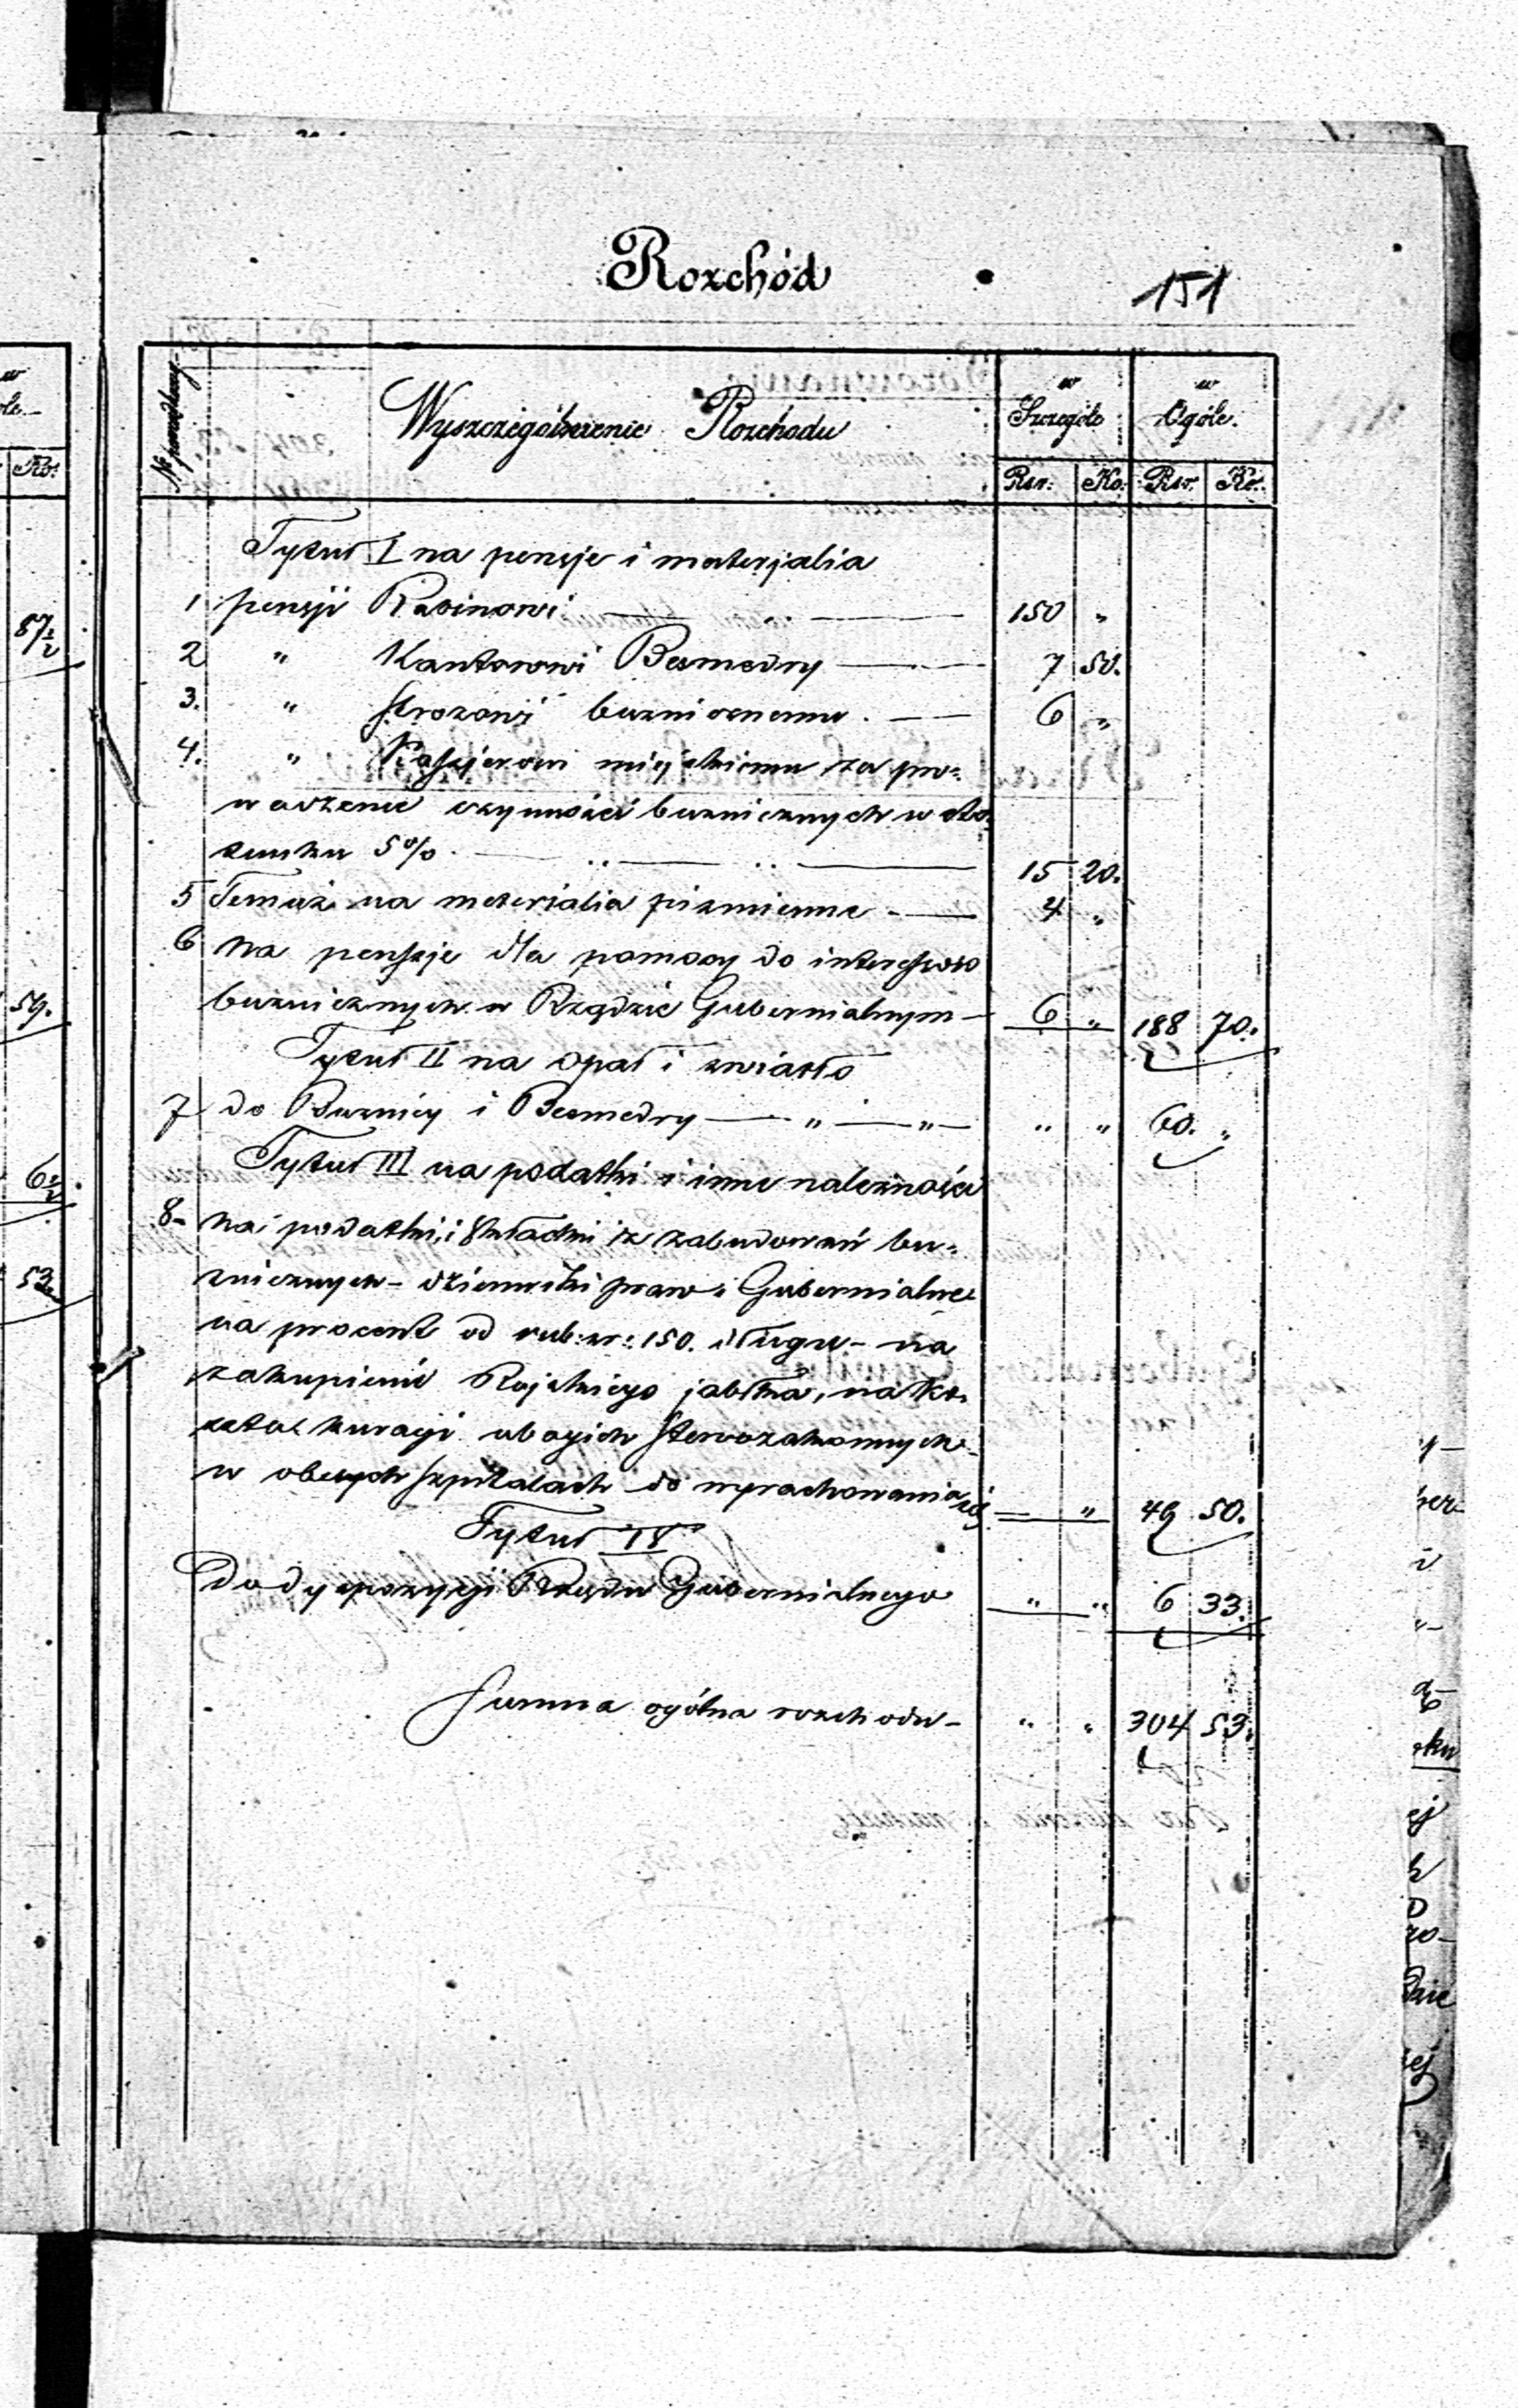 Rozchód
151
№ porządkowy
Wyszczególnienie Rozchodu
w Szczególe
w Ogóle.
Rsr. Ko: Rsr. Ko:
Tytuł I na pensje i materjalia
1 pensji Rabinowi 150 "
2 " Kantorowi Besmedry 7 50.
3. " Stróżowi buźnicznemu. 6 "
4. " Kassjerowi miejskiemu za pro-
wadzenie czynności buźnicznych w sto-
sunku 5% 15 20.
5 Temuż na materialia piśmienne 4 "
6 na pensje dla pomocy do interessów
buźnicznych w Rządzie Gubernialnym 6 " 188 70.
Tytuł II na opał i światło
7 do Buźnicy i Besmedry " " " " 60. "
Tytuł III na podatki i inne należności
8- na podatki i składki z zabudowań bu-
źnicznych - dzienniki praw i Gubernialne
na procent od rub: sr: 150. długu - na
zakupienie Rajskiego jabłka, na ko-
szta kuracji ubogich starozakonnych
w obcych szpitalach do wyrachowania się " 49 50.
Tytuł IV
Do dyspozycji Rządu Gubernialnego " " 6 33.
Summa ogólna rozchodu - " " 304 53.
Ko:
87½
59.
6½
53